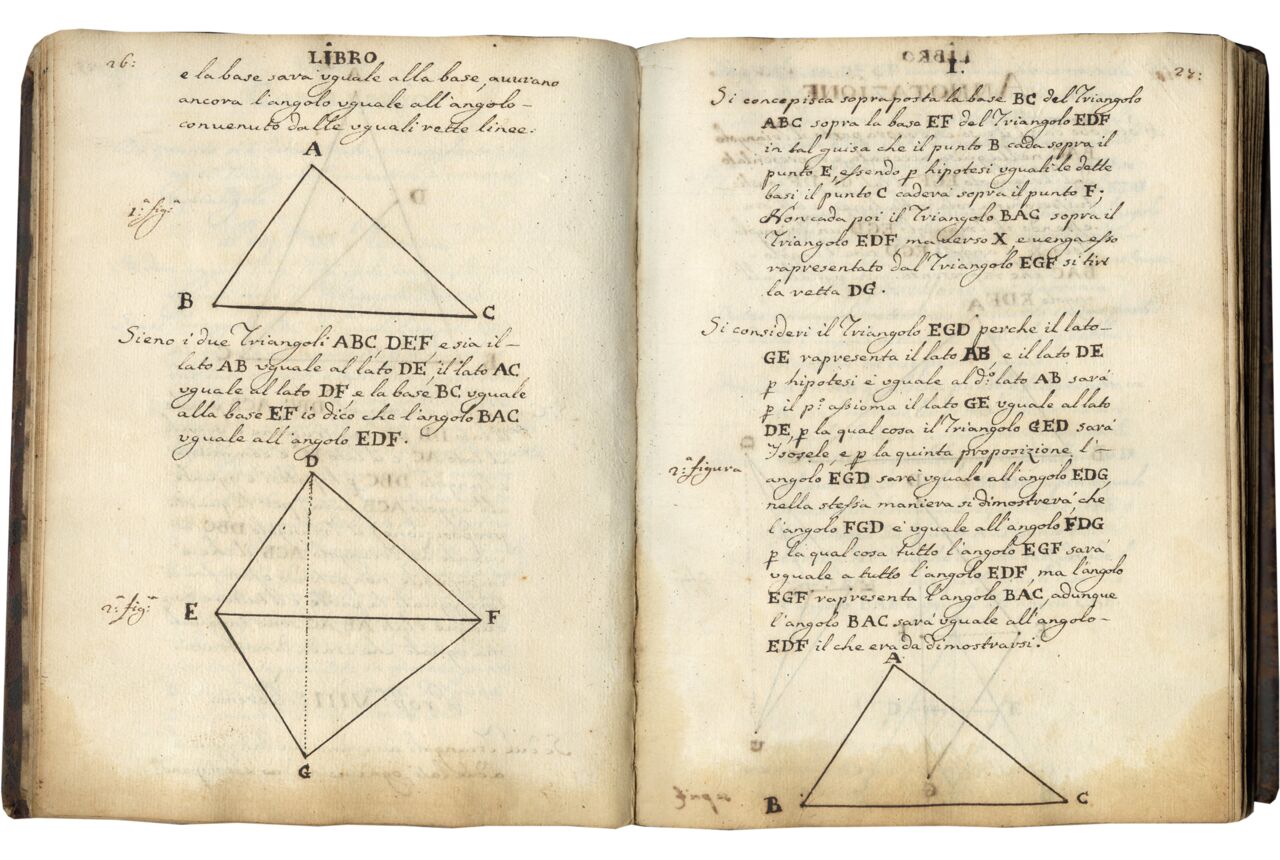 26:
LIBRO
e la base sarà vguale alla base, avvrano
ancora l'angolo vguale all'angolo -
contenuto dalle vguali rette linee:
A
1.ª fig.ª
D
B
C
Sieno i due Triangoli ABC, DEF, e sia il -
lato AB vguale al lato DE, il lato AC
vguale al lato DF, e la base BC vguale
alla base EF io dico che l'angolo BAC
vguale all'angolo EDF.
D
2.ª fig.ª
E
F
G
LIBRO
I.
27:
Si concepisca sopraposta la base BC del Triangolo
ABC sopra la base EF del Triangolo EDF
in tal guisa che il punto B cada sopra il
punto E, essendo p hipotesi vguali le dette
basi il punto C caderà sopra il punto F;
Non cada poi il Triangolo BAC sopra il
Triangolo EDF ma verso X, e venga esso
rapresentato dal Triangolo EGF si tiri
la retta DG.
Si consideri il Triangolo EGD perche il lato -
GE rapresenta il lato AB, e il lato DE
p hipotesi è vguale al d.º lato AB sarà
p il p.º assioma il lato GE vguale al lato
DE, p la qual cosa il Triangolo GED sarà
Isosele, e p la quinta proposizione l' -
2.ª figura
angolo EGD sarà vguale all'angolo EDG
nella stessa maniera si dimostrerà, che
l'angolo FGD è vguale all'angolo FDG
p la qual cosa tutto l'angolo EGF sarà
vguale a tutto l'angolo EDF, ma l'angolo
EGF rapresenta l'angolo BAC, adunque
l'angolo BAC sarà vguale all'angolo -
EDF il che era da dimostrarsi.
A
B
C